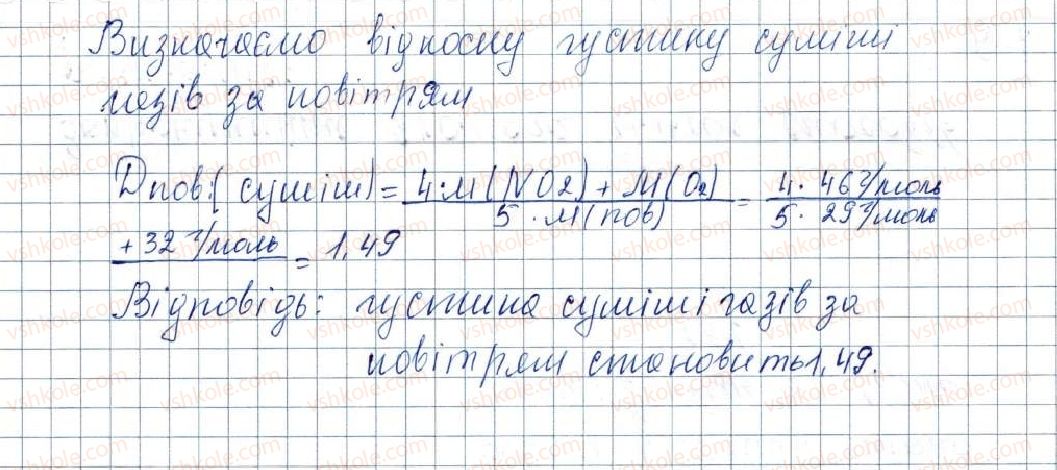 Визначаємо відносну густину суміші
газів за повітрям
Dпов.(суміш) = 4·M(NO2) + M(O2) / 5·M(пов) = 4·46 г/моль / 5·29 г/моль
+ 32 г/моль = 1,49
Відповідь: густина суміші газів за
повітрям становить 1,49.